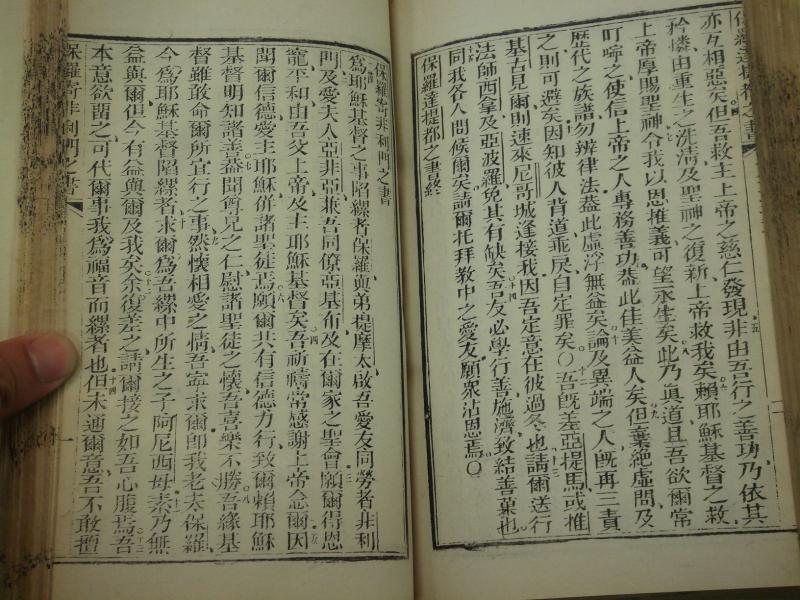 保羅達提都之書
亦互相惡矣但吾救主上帝之慈仁發現非由吾行之善功乃依其
矜憐由重生之洗清及聖神之復新上帝救我矣賴耶穌基督之救
上帝厚賜聖神令我以恩推義可望永生矣此乃眞道且吾欲爾常
叮嚀之使信上帝之人專務善功葢此佳美益人矣但棄絕虛問及
歷代之族譜勿辨律法葢此虛浮無益矣論及異端之人旣再三責
之則可避矣因知彼人背道乖戾自定罪矣〇吾旣差亞提馬或推
基古見爾則速來尼哥城逢接我因吾定意在彼過冬也請爾送行
法師西拿及亞波羅免其有缺矣吾友必學行善施濟致結善菓也
同我各人問候爾矣請爾托拜教中之愛友願衆沾恩焉〇
保羅達提都之書終
保羅寄非利門之書
爲耶穌基督之事陷縲者保羅與弟提摩太啟吾愛友同勞者非利
門及愛夫人亞非亞兼吾同僚亞基布及在爾家之聖會願爾得恩
寵平和由吾父上帝及主耶穌基督矣吾祈禱常感謝上帝念爾因
聞爾信德愛主耶穌併諸聖徒焉願爾共有信德力行致爾賴耶穌
基督明知諸善葢聞尊兄之仁慰諸聖徒之懷吾喜樂不勝吾緣基
督雖敢命爾所宜行之事然懷相愛之情吾寧求爾卽我老太保羅
今爲耶穌基督陷縲者求爾爲吾縲中所生之子阿尼西母素乃無
益與爾但今有益與爾及我矣余復差之請爾接之如吾心腹焉吾
本意欲留之可代爾事我爲福音而縲者也但未通爾意吾不敢擅
保羅寄非利門之書
一